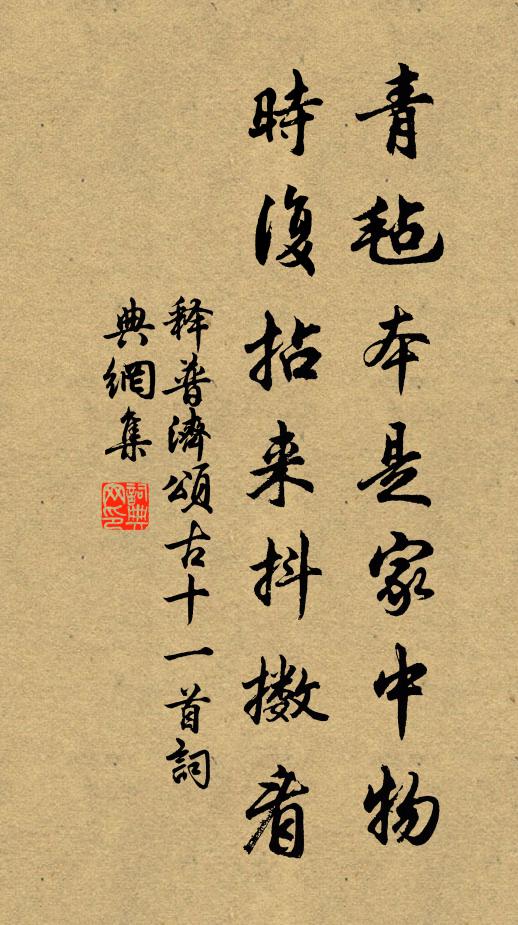 青毡本是家中物
時復拈来抖擻看
释普濟頌古十一首詞
典網集
詞典网印